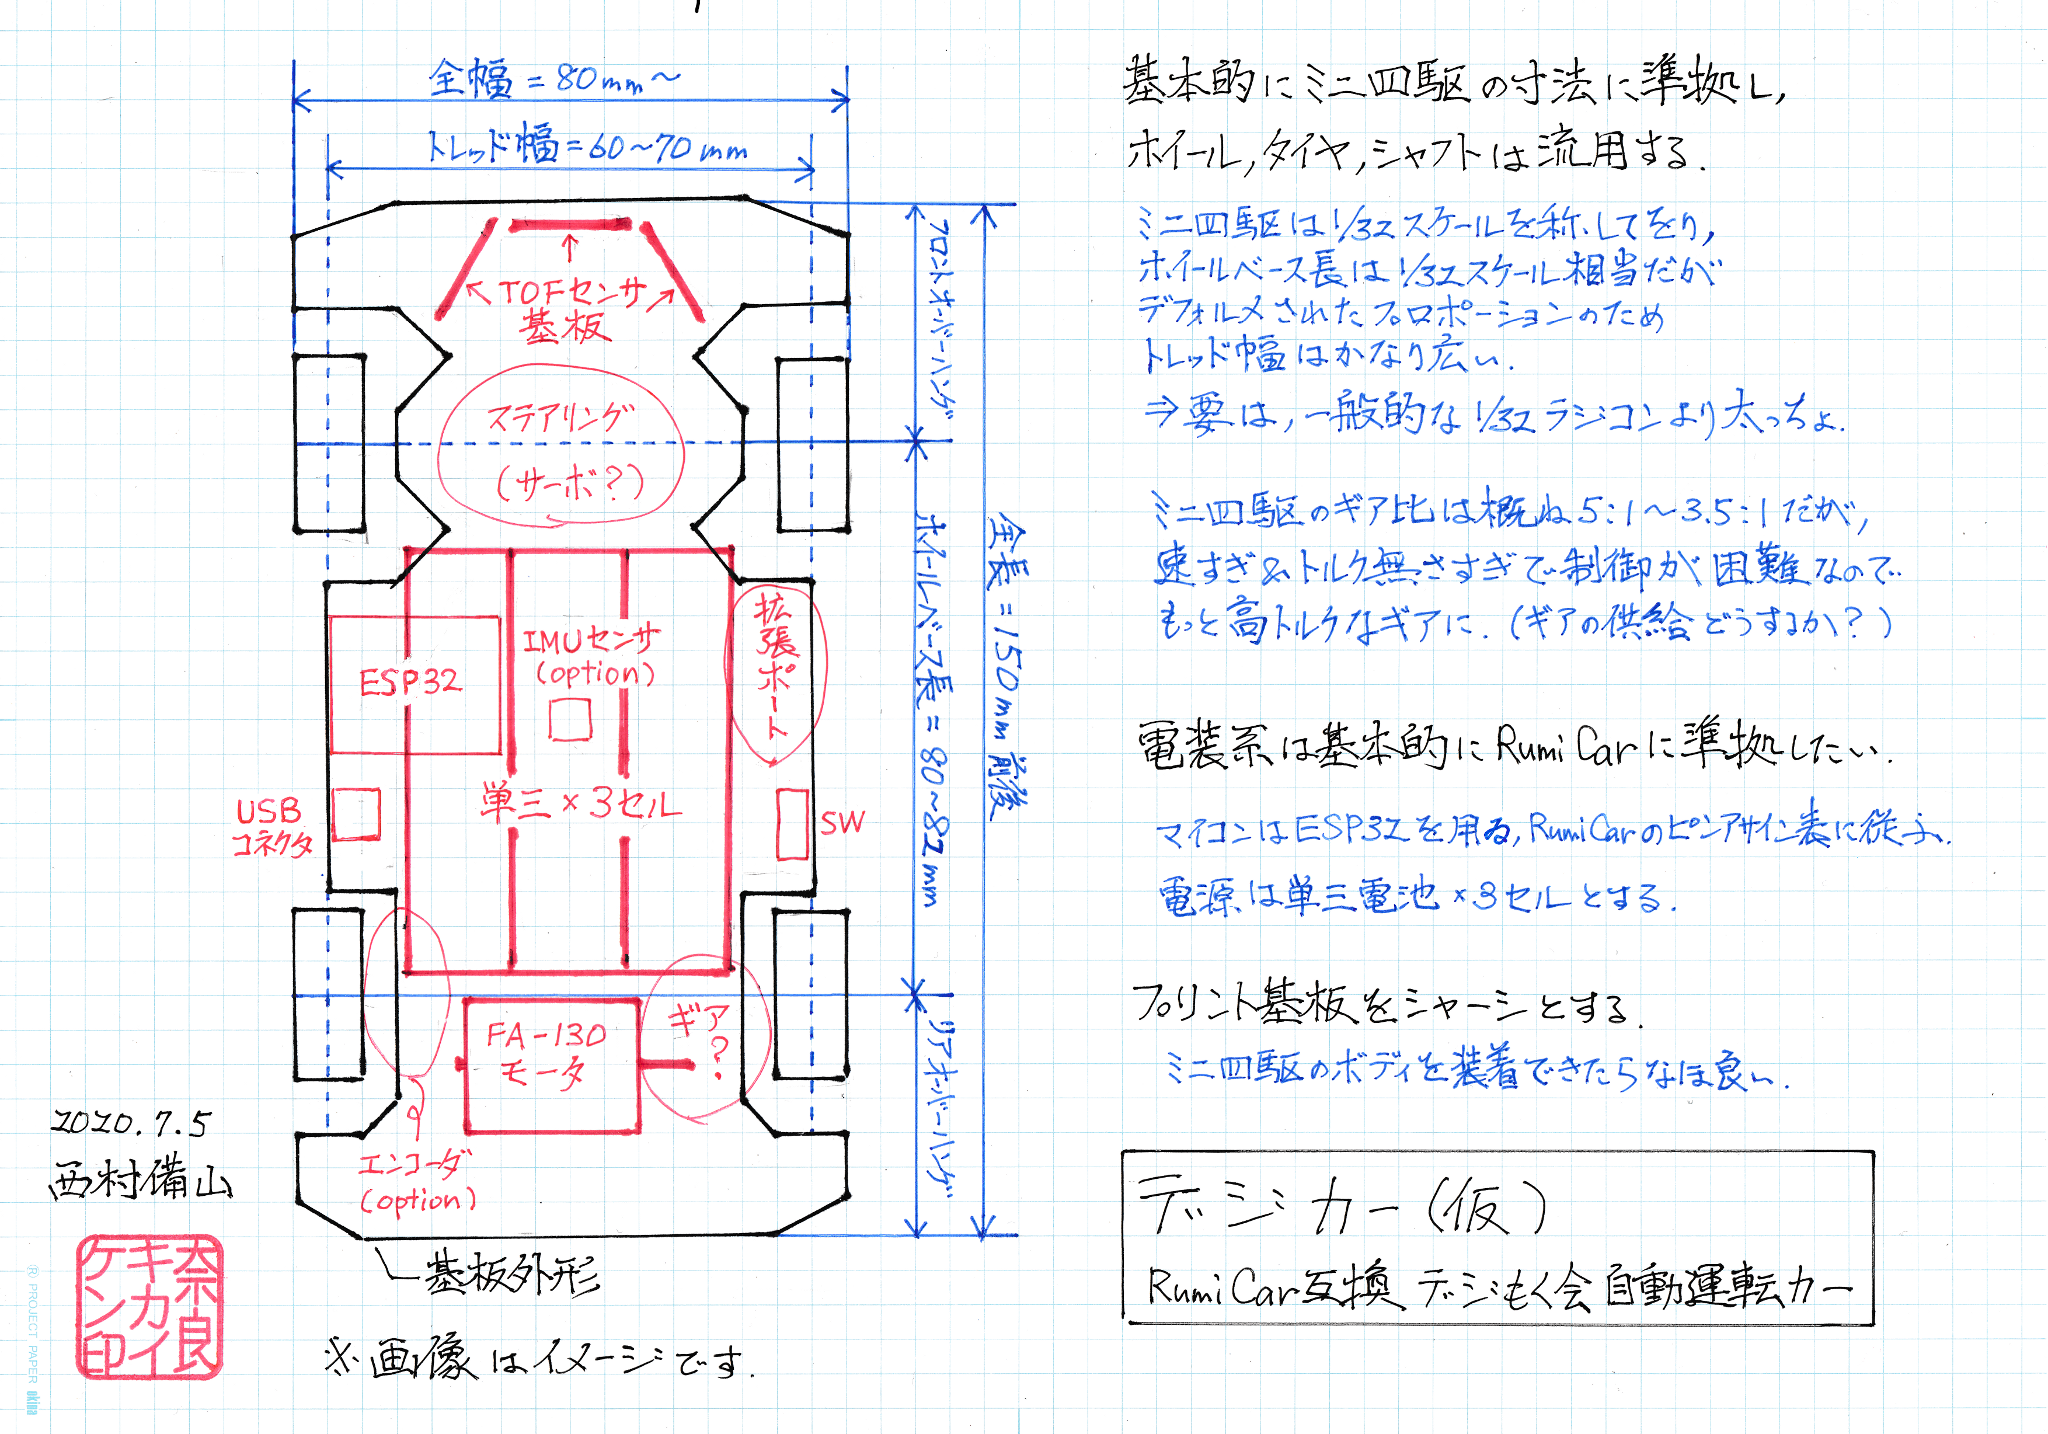 全幅=80mm〜
トレッド幅=60〜70mm
フロントオーバーハング
TOFセンサ
基板
ステアリング
(サーボ?)
ホイールベース長=80〜82mm
全長=150mm前後
拡張ポート
IMUセンサ
(option)
ESP32
単三×3セル
USB
コネクタ
SW
FA-130
モータ
ギア
?
リアオーバーハング
エンコーダ
(option)
基板外形
※画像はイメージです.
2020.7.5
西村備山
奈良
キカイ
ケン印
基本的にミニ四駆の寸法に準拠し,
ホイール,タイヤ,シャフトは流用する.
ミニ四駆は1/32スケールを称してをり,
ホイールベース長は1/32スケール相当だが
デフォルメされたプロポーションのため
トレッド幅はかなり広い.
⇒要は,一般的な1/32ラジコンより太っちょ.
ミニ四駆のギア比は概ね5:1〜3.5:1だが,
速すぎ&トルク無さすぎで制御が困難なので
もっと高トルクなギアに.(ギアの供給どうするか?)
電装系は基本的にRumiCarに準拠したい.
マイコンはESP32を用ゐ,RumiCarのピンアサイン表に従ふ.
電源は単三電池×3セルとする.
プリント基板をシャーシとする.
ミニ四駆のボディを装着できたらなほ良い.
デジカー(仮)
RumiCar互換 デジもく会 自動運転カー
® PROJECT PAPER okina